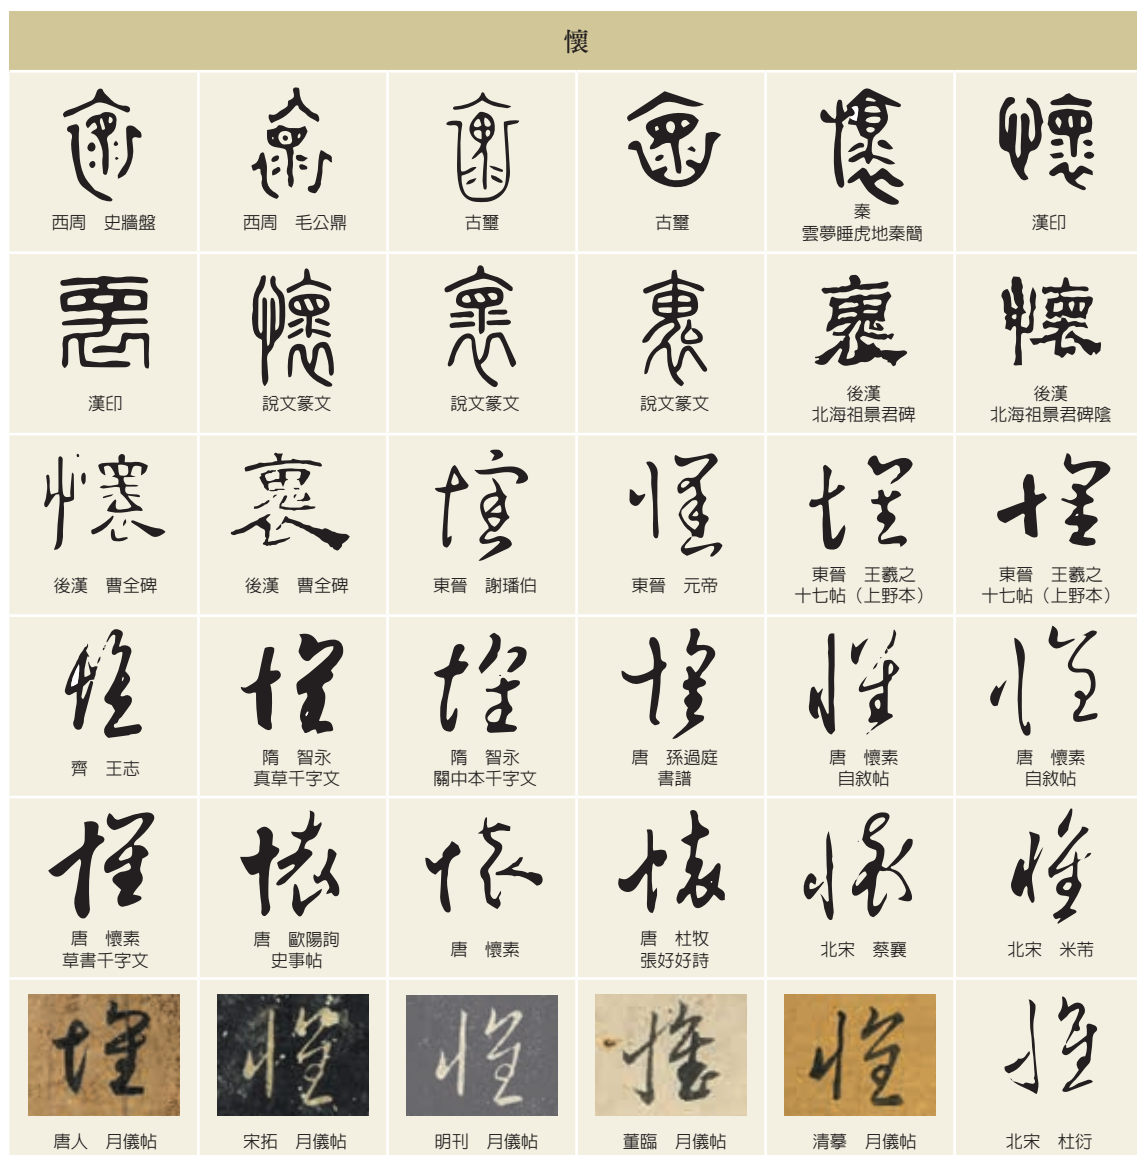 懷
西周　史牆盤
西周　毛公鼎
古璽
古璽
秦
雲夢睡虎地秦簡
漢印
漢印
說文篆文
說文篆文
說文篆文
後漢
北海祖景君碑
後漢
北海祖景君碑陰
後漢　曹全碑
後漢　曹全碑
東晉　謝璠伯
東晉　元帝
東晉　王羲之
十七帖（上野本）
東晉　王羲之
十七帖（上野本）
齊　王志
隋　智永
真草千字文
隋　智永
關中本千字文
唐　孫過庭
書譜
唐　懷素
自敘帖
唐　懷素
自敘帖
唐　懷素
草書千字文
唐　歐陽詢
史事帖
唐　懷素
唐　杜牧
張好好詩
北宋　蔡襄
北宋　米芾
唐人　月儀帖
宋拓　月儀帖
明刊　月儀帖
董臨　月儀帖
清摹　月儀帖
北宋　杜衍